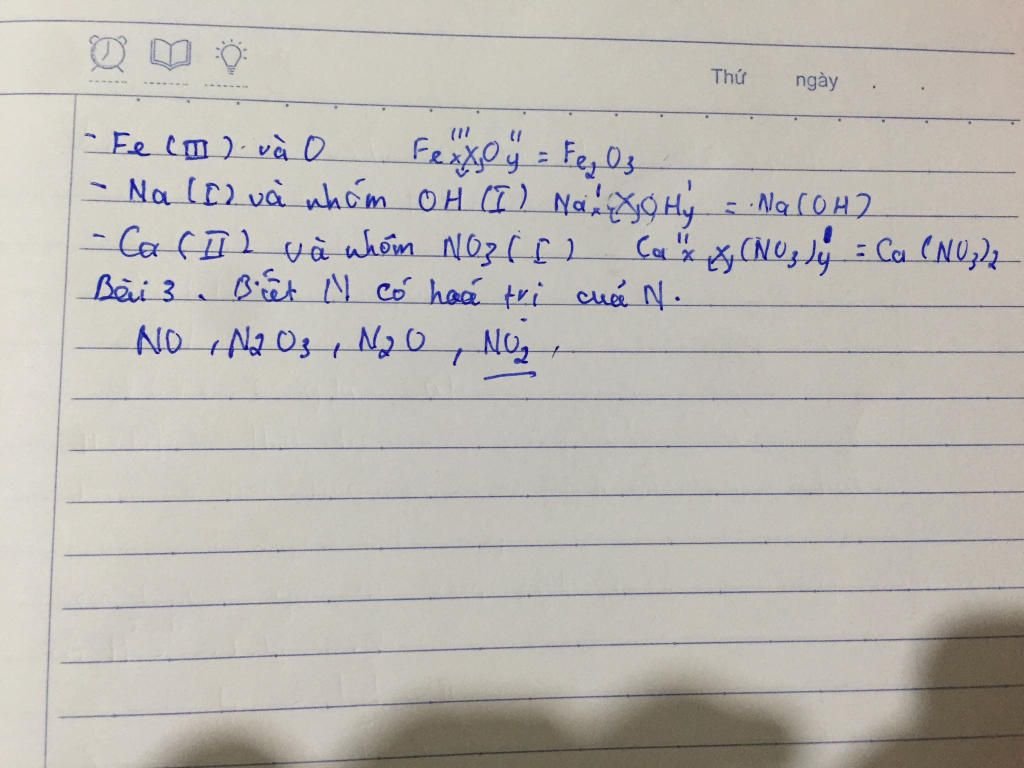 Thứ ngày . .
- Fe (III) và O Feₓᴵᴵᴵ Oyᴵᴵ = Fe₂O₃
- Na (I) và nhóm OH (I) Naₓᴵ OHyᴵ = Na(OH)
- Ca (II) và nhóm NO3 (I) Caₓᴵᴵ (NO₃)y = Ca(NO₃)₂
Bài 3. Biết có hoá trị cuả N.
NO, N2O3, N2O, NO₂,